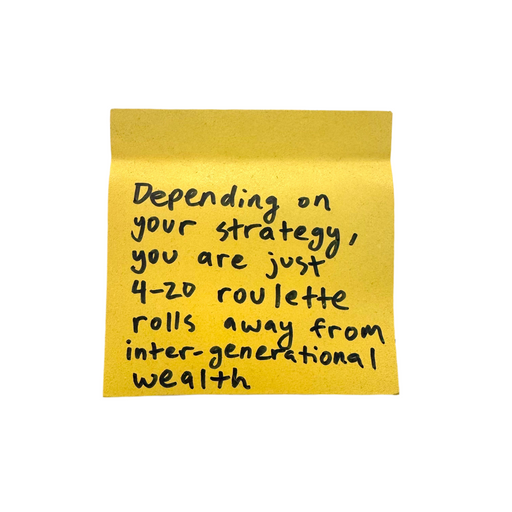 Depending on
your strategy,
you are just
4-20 roulette
rolls away from
inter-generational
wealth